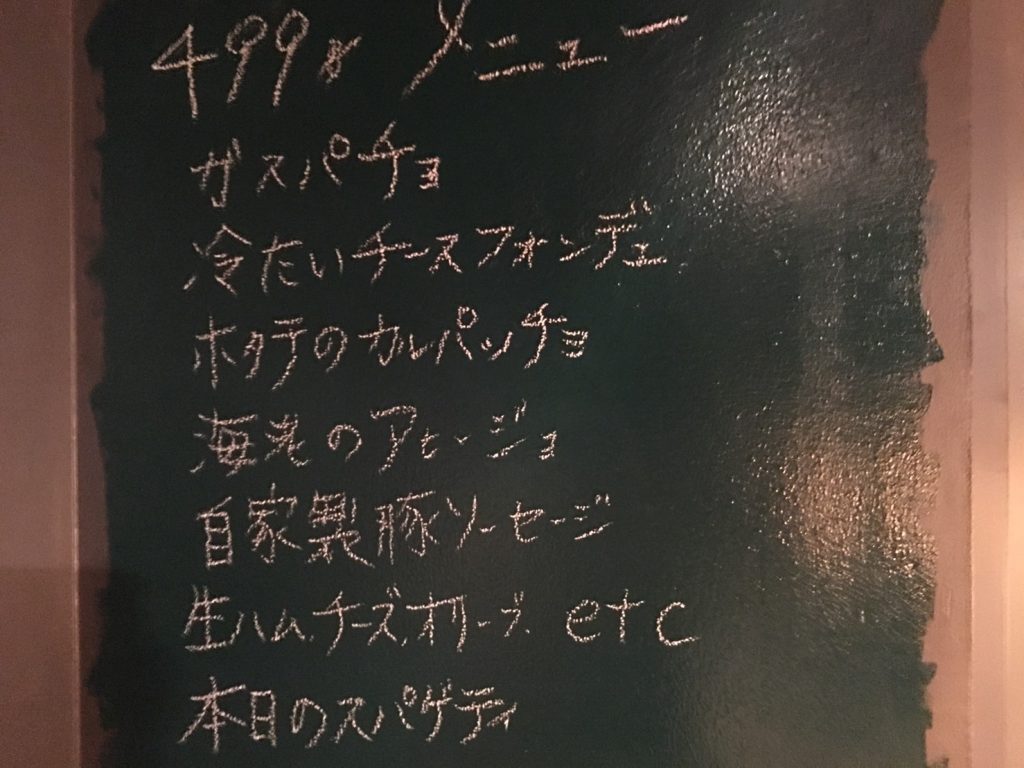 499¥ メニュー
ガスパチョ
冷たいチーズフォンデュ
ホタテのカルパッチョ
海老のアヒージョ
自家製豚ソーセージ
生ハム、チーズ、オリーブ、etc
本日のスパゲティ